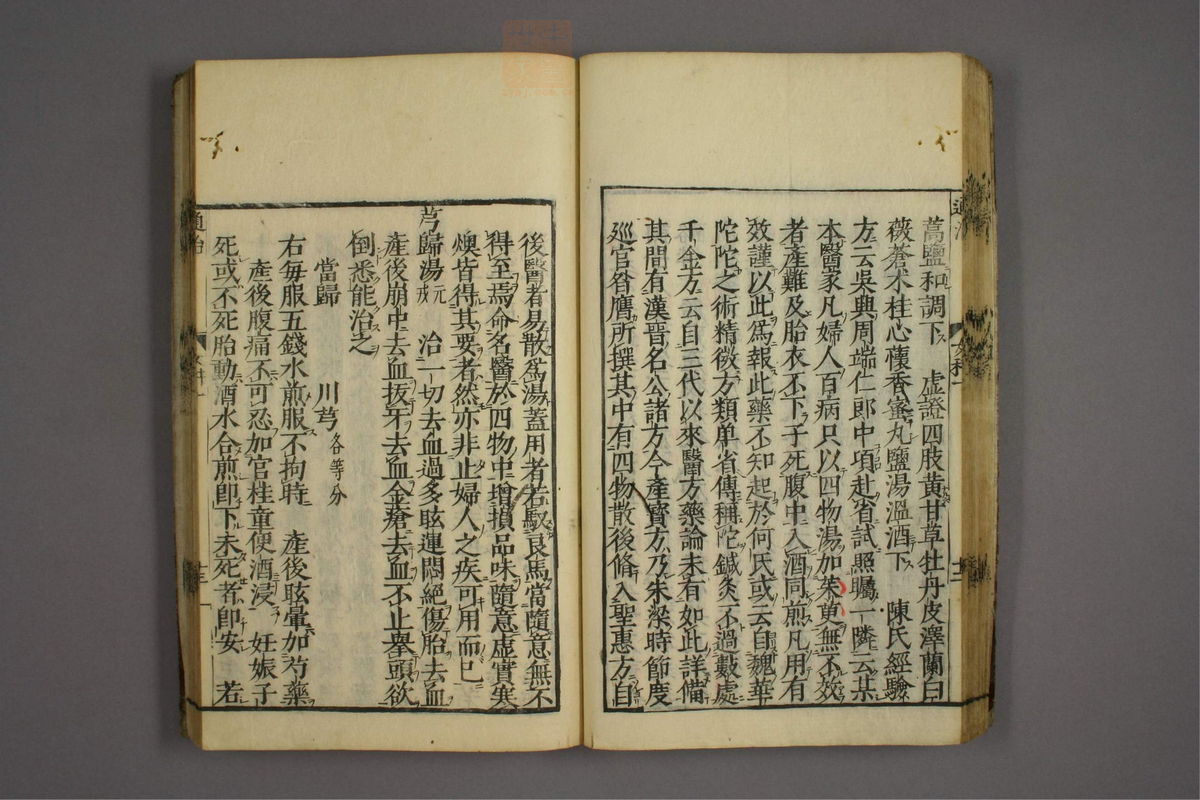 蒿鹽和調下　虛證四肢黃甘草牡丹皮澤蘭曰
薇蒼朮桂心蘹香蜜丸鹽湯溫酒下　陳氏經驗
方云吳興周端仁郎中項赴省試照矚一隣云某
本醫家凡婦人百病只以四物湯加茱萸無不效
者產難及胎衣不下子死腹中入酒同煎凡用有
效謹以此爲報此藥不知起於何氏或云自魏華
陀陀之術精微方類单省傳稱陀鍼灸不過數處
千金方云自三代以來醫方藥論未有如此詳備
其間有漢晉名公諸方今產寶方乃朱梁時節度
巡官昝膺所撰其中有四物散後俻入聖惠方自
後醫者易散爲湯蓋用者若馭良馬當隨意無不
得至焉命名醫於四物中增損品味隨意虛實寒
燠皆得其要者然亦非止婦人之疾可用而已
芎歸湯元戎　治一切去血過多眩運悶絕傷胎去血
產後崩中去血拔牙去血金瘡去血不止擧頭欲
倒悉能治之
當歸　川芎各等分
右每服五錢水煎服不拘時　產後眩暈加芍藥
產後腹痛不可忍加官桂童便酒浸　妊娠子
死或不死胎動酒水合煎卽下未死者卽安　若
通治
女科一
十三